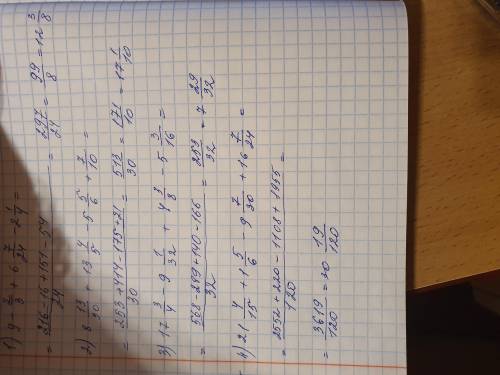 1) 9 - 2/3 + 6 7/24 - 2 1/4 =
= (216-16+151-54)/24 = 297/24 = 99/8 = 12 3/8
2) 8 13/30 + 13 4/5 - 5 5/6 + 7/10 =
= (253+414-175+21)/30 = 513/30 = 171/10 = 17 1/10
3) 17 3/4 - 9 1/32 + 4 3/8 - 5 3/16 =
= (568-289+140-166)/32 = 253/32 = 7 29/32
4) 21 4/15 + 1 5/6 - 9 7/30 + 16 7/24 =
= (2552+220-1108+1955)/120 =
= 3619/120 = 30 19/120